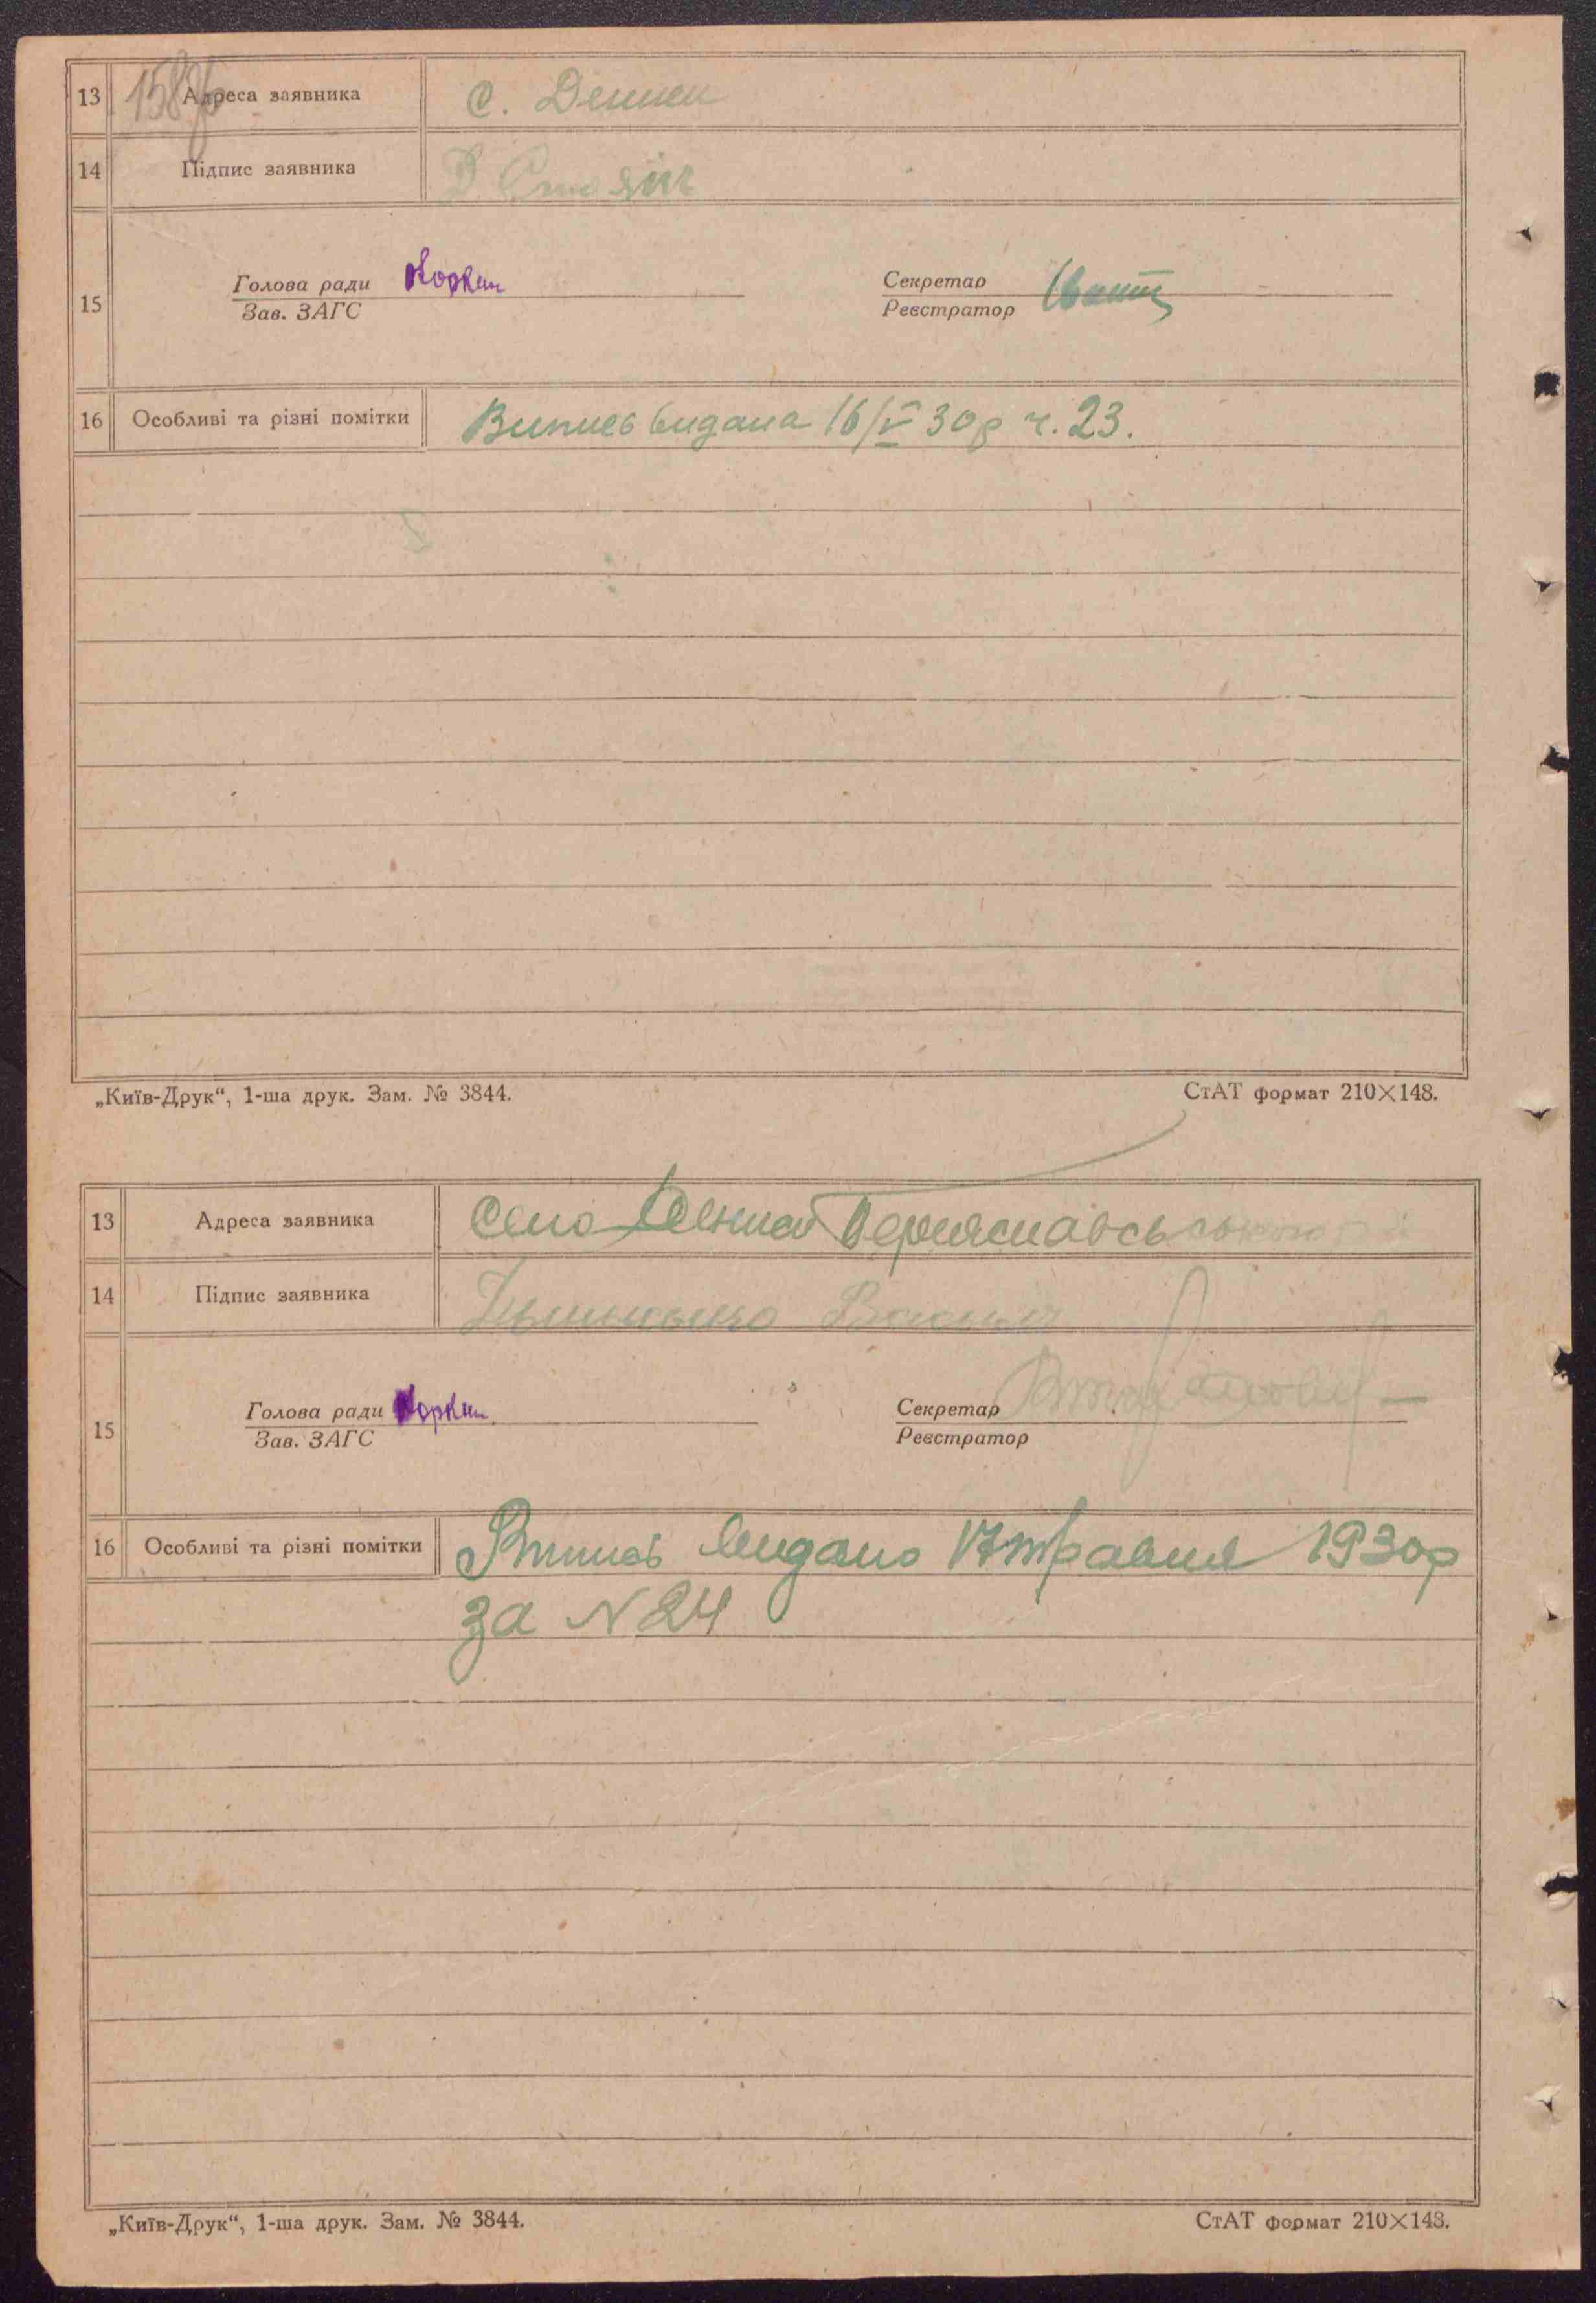 158
13 Адреса заявника с. Денеси
14 Підпис заявника Д. Стоян
15 Голова ради Коркин Секретар
Зав. ЗАГС Реєстратор
16 Особливі та різні помітки Випись видана 16/V 30р ч. 23.
„Київ-Друк“, 1-ша друк. Зам. № 3844. СтАТ формат 210×148.
13 Адреса заявника Село
14 Підпис заявника
15 Голова ради Коркин Секретар
Зав. ЗАГС Реєстратор
16 Особливі та різні помітки Випись видано 17 травня 1930р
за N 24
„Київ-Друк“, 1-ша друк. Зам. № 3844. СтАТ формат 210×148.